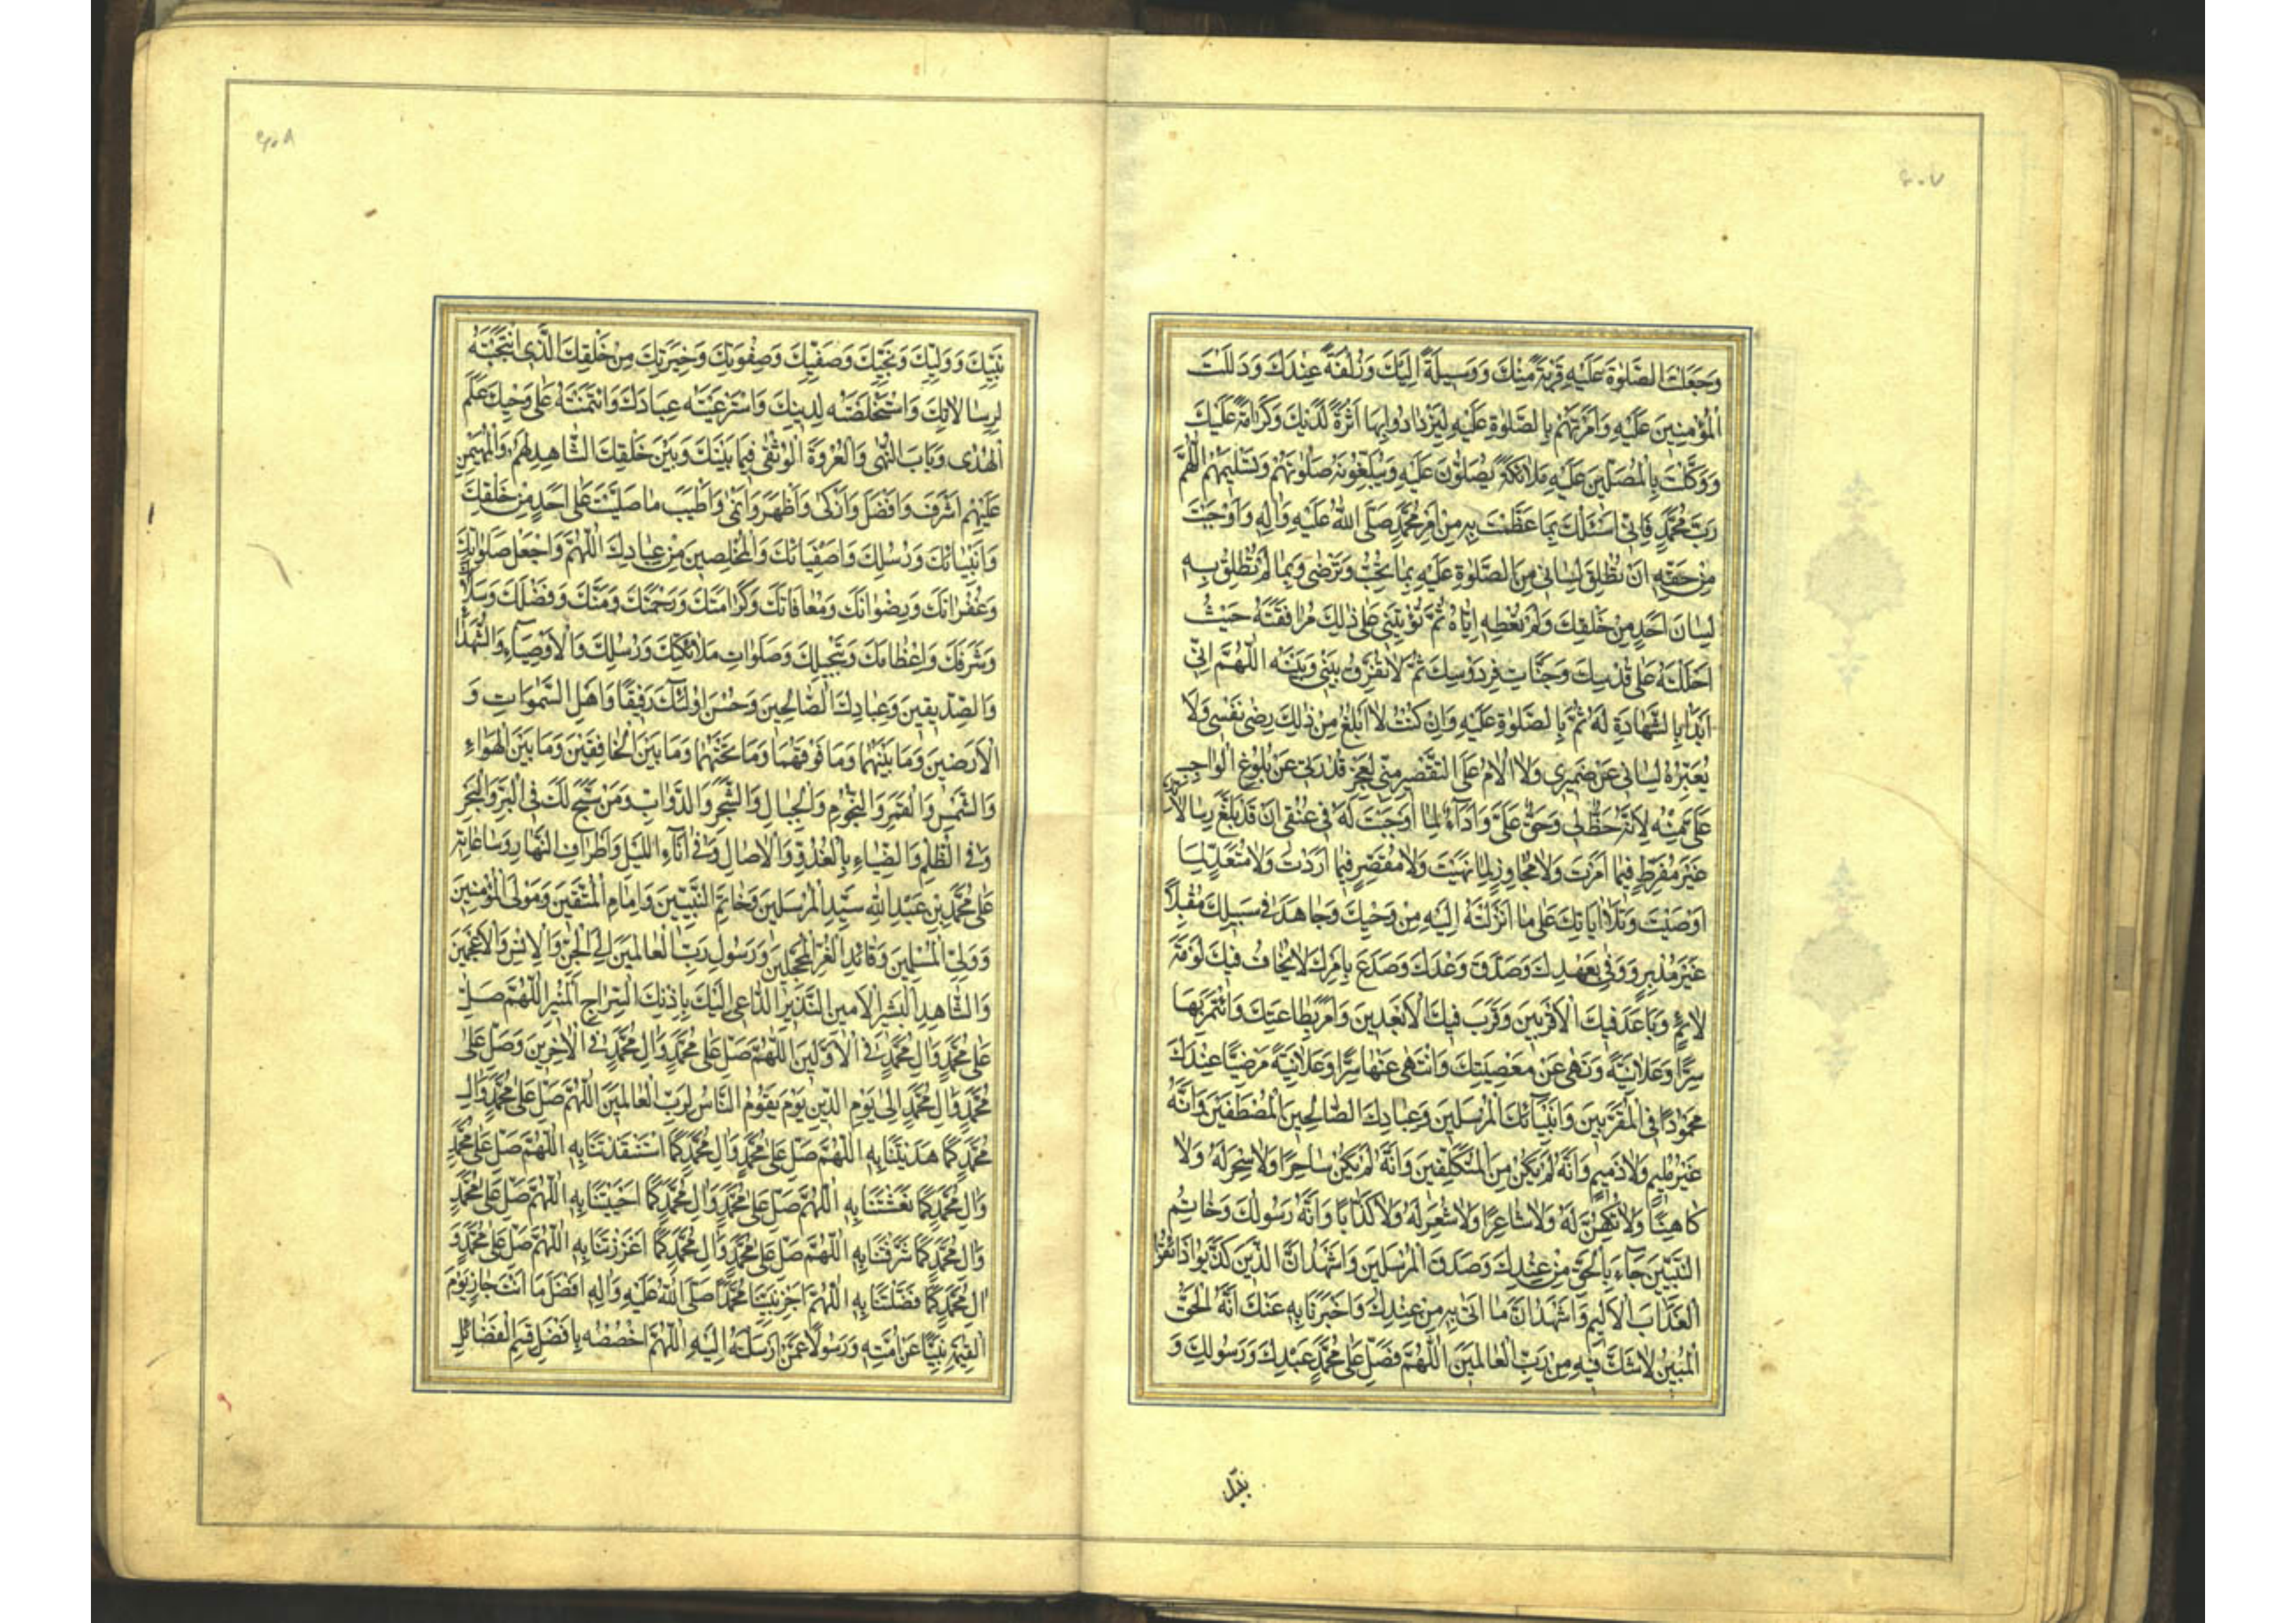 ٤٠٧
وَجَعَلْتَ الصَّلوٰةَ عَلَيْهِ قُرْبَةً مِنْكَ وَوَسِيلَةً اِلَيْكَ وَزُلْفَةً عِنْدَكَ وَدَلَلْتَ
الْمُؤْمِنِينَ عَلَيْهِ وَاَمَرْتَهُمْ بِالصَّلوٰةِ عَلَيْهِ لِيَزْدَادُوا بِهَا اَثَرَةً لَدَيْكَ وَكَرَامَةً عَلَيْكَ
وَوَكَّلْتَ بِالْمُصَلِّينَ عَلَيْهِ مَلَائِكَةً يُصَلُّونَ عَلَيْهِ وَيُبَلِّغُونَهُ صَلٰوتَهُمْ وَتَسْلِيمَهُمْ اَللّٰهُمَّ
رَبَّ مُحَمَّدٍ فَاِنِّي اَسْئَلُكَ بِمَا عَظَّمْتَ بِهِ مِنْ اَمْرِ مُحَمَّدٍ صَلَّى اللّٰهُ عَلَيْهِ وَاٰلِهِ وَاَوْجَبْتَ
مِنْ حَقِّهِ اَنْ تُطْلِقَ لِسَانِي مِنَ الصَّلوٰةِ عَلَيْهِ بِمَا تُحِبُّ وَتَرْضٰى وَبِمَا لَمْ تُطْلِقْ بِهِ
لِسَانَ اَحَدٍ مِنْ خَلْقِكَ وَلَمْ تُعْطِهِ اِيَّاهُ ثُمَّ تُؤْتِيَنِي عَلٰى ذٰلِكَ مُرَافَقَتَهُ حَيْثُ
اَحْلَلْتَهُ عَلٰى قُدْسِكَ وَجَنَّاتِ فِرْدَوْسِكَ ثُمَّ لَا تُفَرِّقْ بَيْنِي وَبَيْنَهُ اَللّٰهُمَّ اِنِّي
اَبْدَأُ بِالشَّهَادَةِ لَهُ ثُمَّ بِالصَّلوٰةِ عَلَيْهِ وَاِنْ كُنْتُ لَا اَبْلُغُ مِنْ ذٰلِكَ رِضٰى نَفْسِي وَلَا
يُعَبِّرُهُ لِسَانِي عَنْ ضَمِيرِي وَلَا اُلَامُ عَلَى التَّقْصِيرِ مِنِّي لِعَجْزِ قُدْرَتِي عَنْ بُلُوغِ الْوَاجِبِ
عَلَيَّ مِنْهُ لِاَنَّهُ حَظٌّ لِي وَحَقٌّ عَلَيَّ وَاَدَاءٌ لِمَا اَوْجَبْتَ لَهُ فِي عُنُقِي اَنْ قَدْ بَلَّغَ رِسَالَاتِكَ
غَيْرَ مُفَرِّطٍ فِيمَا اَمَرْتَ وَلَا مُجَاوِزٍ لِمَا نَهَيْتَ وَلَا مُقَصِّرٍ فِيمَا اَرَدْتَ وَلَا مُتَعَدٍّ لِمَا
اَوْصَيْتَ وَتَلَا اٰيَاتِكَ عَلٰى مَا اَنْزَلْتَهُ اِلَيْهِ مِنْ وَحْيِكَ وَجَاهَدَ فِي سَبِيلِكَ مُقْبِلًا
غَيْرَ مُدْبِرٍ وَوَفٰى بِعَهْدِكَ وَصَدَّقَ وَعْدَكَ وَصَدَعَ بِاَمْرِكَ لَا يَخَافُ فِيكَ لَوْمَةَ
لَائِمٍ وَبَاعَدَ فِيكَ الْاَقْرَبِينَ وَقَرَّبَ فِيكَ الْاَبْعَدِينَ وَاَمَرَ بِطَاعَتِكَ وَائْتَمَرَ بِهَا
سِرًّا وَعَلَانِيَةً وَنَهٰى عَنْ مَعْصِيَتِكَ وَانْتَهٰى عَنْهَا سِرًّا وَعَلَانِيَةً مَرْضِيًّا عِنْدَكَ
مَحْمُودًا فِي الْمُقَرَّبِينَ وَاَنْبِيَائِكَ الْمُرْسَلِينَ وَعِبَادِكَ الصَّالِحِينَ الْمُصْطَفَيْنَ وَاَنَّهُ
غَيْرُ مُلِيمٍ وَلَا ذَمِيمٍ وَاَنَّهُ لَمْ يَكُنْ مِنَ الْمُتَكَلِّفِينَ وَاَنَّهُ لَمْ يَكُنْ سَاحِرًا وَلَا سُحِرَ لَهُ وَلَا
كَاهِنًا وَلَا تُكُهِّنَ لَهُ وَلَا شَاعِرًا وَلَا شُعِرَ لَهُ وَلَا كَذَّابًا وَاَنَّهُ رَسُولُكَ وَخَاتَمُ
النَّبِيِّينَ جَاءَ بِالْحَقِّ مِنْ عِنْدِكَ وَصَدَّقَ الْمُرْسَلِينَ وَاَشْهَدُ اَنَّ الَّذِينَ كَذَّبُوا ذَائِقُوا
الْعَذَابَ الْاَلِيمِ وَاَشْهَدُ اَنَّ مَا اَتٰى بِهِ مِنْ عِنْدِكَ وَاَخْبَرَنَا بِهِ عَنْكَ اَنَّهُ الْحَقُّ
الْمُبِينُ لَا شَكَّ فِيهِ مِنْ رَبِّ الْعَالَمِينَ اَللّٰهُمَّ فَصَلِّ عَلٰى مُحَمَّدٍ عَبْدِكَ وَرَسُولِكَ وَ
٤٠٨
نَبِيِّكَ وَوَلِيِّكَ وَنَجِيِّكَ وَصَفِيِّكَ وَصِفْوَتِكَ وَخِيَرَتِكَ مِنْ خَلْقِكَ الَّذِي انْتَجَبْتَهُ
لِرِسَالَاتِكَ وَاسْتَخْلَصْتَهُ لِدِينِكَ وَاسْتَرْعَيْتَهُ عِبَادَكَ وَائْتَمَنْتَهُ عَلٰى وَحْيِكَ عَلَمِ
الْهُدٰى وَبَابِ النُّهٰى وَالْعُرْوَةِ الْوُثْقٰى فِيمَا بَيْنَكَ وَبَيْنَ خَلْقِكَ الشَّاهِدِ لَهُمْ وَالْمُهَيْمِنِ
عَلَيْهِمْ اَشْرَفَ وَاَفْضَلَ وَاَزْكٰى وَاَطْهَرَ وَاَنْمٰى وَاَطْيَبَ مَا صَلَّيْتَ عَلٰى اَحَدٍ مِنْ خَلْقِكَ
وَاَنْبِيَائِكَ وَرُسُلِكَ وَاَصْفِيَائِكَ وَالْمُخْلِصِينَ مِنْ عِبَادِكَ اَللّٰهُمَّ وَاجْعَلْ صَلَوَاتِكَ
وَغُفْرَانَكَ وَرِضْوَانَكَ وَمُعَافَاتَكَ وَكَرَامَتَكَ وَرَحْمَتَكَ وَمَنَّكَ وَفَضْلَكَ وَسَلَامَكَ
وَشَرَفَكَ وَاِعْظَامَكَ وَتَبْجِيلَكَ وَصَلَوَاتِ مَلَائِكَتِكَ وَرُسُلِكَ وَالْاَوْصِيَاءِ وَالشُّهَدَاءِ
وَالصِّدِّيقِينَ وَعِبَادِكَ الصَّالِحِينَ وَحَسُنَ اُولٰئِكَ رَفِيقًا وَاَهْلِ السَّمٰوَاتِ وَ
الْاَرَضِينَ وَمَا بَيْنَهُمَا وَمَا فَوْقَهُمَا وَمَا تَحْتَهُمَا وَمَا بَيْنَ الْخَافِقَيْنِ وَمَا بَيْنَ الْهَوَاءِ
وَالشَّمْسِ وَالْقَمَرِ وَالنُّجُومِ وَالْجِبَالِ وَالشَّجَرِ وَالدَّوَابِّ وَمَنْ سَبَّحَ لَكَ فِي الْبَرِّ وَالْبَحْرِ
وَفِي الظُّلَمِ وَالضِّيَاءِ بِالْغُدُوِّ وَالْاٰصَالِ وَفِي اٰنَاءِ اللَّيْلِ وَاَطْرَافِ النَّهَارِ وَسَاعَاتِهِ
عَلٰى مُحَمَّدِ بْنِ عَبْدِ اللّٰهِ سَيِّدِ الْمُرْسَلِينَ وَخَاتَمِ النَّبِيِّينَ وَاِمَامِ الْمُتَّقِينَ وَمَوْلَى الْمُؤْمِنِينَ
وَوَلِيِّ الْمُسْلِمِينَ وَقَائِدِ الْغُرِّ الْمُحَجَّلِينَ وَرَسُولِ رَبِّ الْعَالَمِينَ اِلَى الْجِنِّ وَالْاِنْسِ وَالْاَعْجَمِينَ
وَالشَّاهِدِ الْبَشِيرِ الْاَمِينِ النَّذِيرِ الدَّاعِي اِلَيْكَ بِاِذْنِكَ السِّرَاجِ الْمُنِيرِ اَللّٰهُمَّ صَلِّ
عَلٰى مُحَمَّدٍ وَاٰلِ مُحَمَّدٍ فِي الْاَوَّلِينَ اَللّٰهُمَّ صَلِّ عَلٰى مُحَمَّدٍ وَاٰلِ مُحَمَّدٍ فِي الْاٰخِرِينَ وَصَلِّ عَلٰى
مُحَمَّدٍ وَاٰلِ مُحَمَّدٍ اِلٰى يَوْمِ الدِّينِ يَوْمَ يَقُومُ النَّاسُ لِرَبِّ الْعَالَمِينَ اَللّٰهُمَّ صَلِّ عَلٰى مُحَمَّدٍ وَاٰلِ
مُحَمَّدٍ كَمَا هَدَيْتَنَا بِهِ اَللّٰهُمَّ صَلِّ عَلٰى مُحَمَّدٍ وَاٰلِ مُحَمَّدٍ كَمَا اسْتَنْقَذْتَنَا بِهِ اَللّٰهُمَّ صَلِّ عَلٰى مُحَمَّدٍ
وَاٰلِ مُحَمَّدٍ كَمَا نَعَشْتَنَا بِهِ اَللّٰهُمَّ صَلِّ عَلٰى مُحَمَّدٍ وَاٰلِ مُحَمَّدٍ كَمَا اَحْيَيْتَنَا بِهِ اَللّٰهُمَّ صَلِّ عَلٰى مُحَمَّدٍ
وَاٰلِ مُحَمَّدٍ كَمَا شَرَّفْتَنَا بِهِ اَللّٰهُمَّ صَلِّ عَلٰى مُحَمَّدٍ وَاٰلِ مُحَمَّدٍ كَمَا اَعْزَزْتَنَا بِهِ اَللّٰهُمَّ صَلِّ عَلٰى مُحَمَّدٍ وَ
اٰلِ مُحَمَّدٍ كَمَا فَضَّلْتَنَا بِهِ اَللّٰهُمَّ اجْزِ نَبِيَّنَا مُحَمَّدًا صَلَّى اللّٰهُ عَلَيْهِ وَاٰلِهِ اَفْضَلَ مَا اَنْتَ جَازٍ يَوْمَ
الْقِيٰمَةِ نَبِيًّا عَنْ اُمَّتِهِ وَرَسُولًا عَمَّنْ اَرْسَلْتَهُ اِلَيْهِ اَللّٰهُمَّ اخْصُصْهُ بِاَفْضَلِ قِسَمِ الْفَضَائِلِ